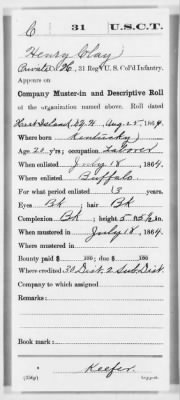 C 31 U.S.C.T.
Henry Clay
Private, Co. 31 Reg't U. S. Col'd Infantry.
Appears on
Company Muster-in and Descriptive Roll
of the organization named above. Roll dated
Hart Island, N.Y. H. Aug. 25, 1864.
Where born Kentucky
Age 21 y'rs; occupation Laborer
When enlisted July 18, 1864.
Where enlisted Buffalo.
For what period enlisted 3 years.
Eyes Bk; hair Bk
Complexion Bk; height 5 ft. 5½ in.
When mustered in July 18, 1864.
Where mustered in
Bounty paid $ 100; due $ 100
Where credited 30 Dist. 2 Sub. Dist.
Company to which assigned
Remarks:
Book mark:
Keefer.
Copyist.